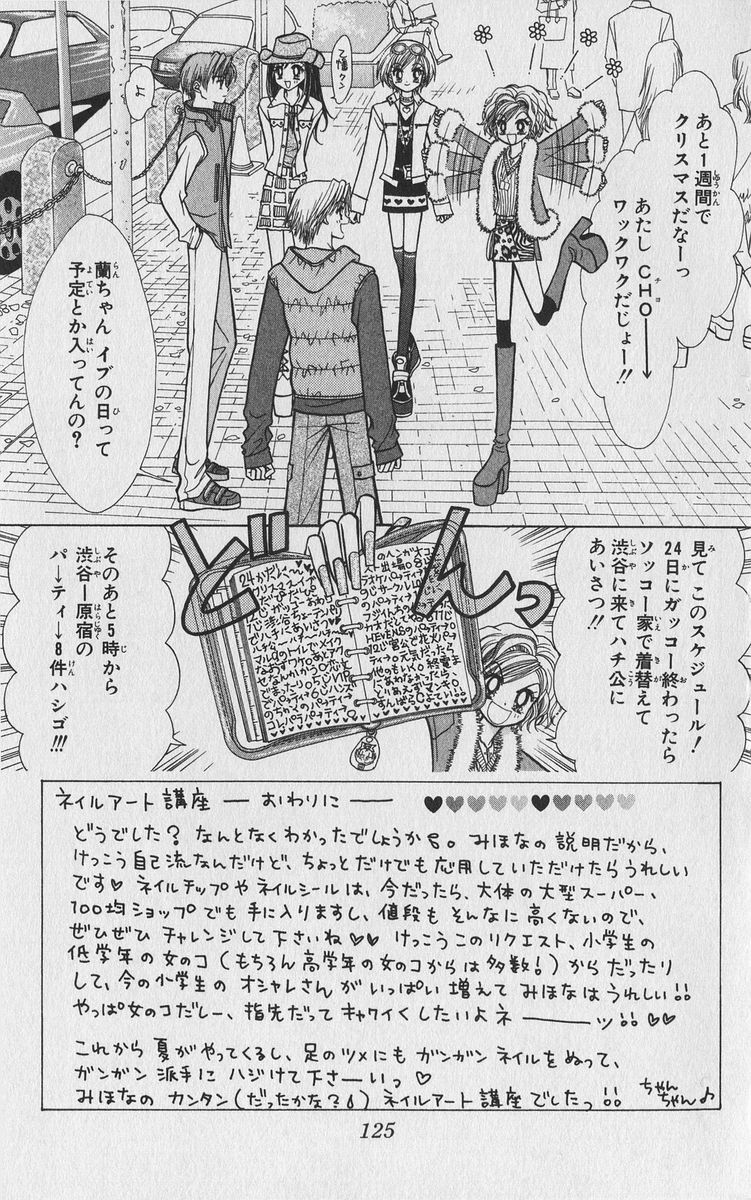 あと1週間で
クリスマスだなーっ
あたし CHO──→
ワックワクだじょー!!
乙幡クン
蘭ちゃん イブの日って
予定とか入ってんの?
見て このスケジュール!
24日にガッコー終わったら
ソッコー家で着替えて
渋谷に来てハチ公に
あいさつっ!!
どーんっ
そのあと5時から
渋谷ー原宿の
パ→ティ→8件ハシゴ!!!
ネイルアート講座 ― おわりに ―― ♥♥♥♥♥♥♥♥♥♥
どうでした? なんとなくわかったでしょうか。 みほなの説明だから、
けっこう自己流なんだけど、ちょっとだけでも応用していただけたらうれしい
です♡ ネイルチップやネイルシールは、今だったら、大体の大型スーパー、
100均ショップでも手に入りますし、値段もそんなに高くないので、
ぜひぜひ チャレンジして下さいね♡♡ けっこうこのリクエスト、小学生の
低学年の女のコ(もちろん高学年の女のコからは多数!)からだったり
して、今の小学生の オシャレさんが いっぱい増えて みほなはうれしい!!
やっぱ女のコだしー、指先だって キャワイくしたいよネ ―――ッ!! ♡♡
これから 夏がやってくるし、足のツメにも ガンガン ネイルをぬって、
ガンガン 派手に ハジけて下さーいっ ♡
みほなの カンタン(だったかな?) ネイルアート講座でしたっ!! ちゃん
ちゃん♪
125